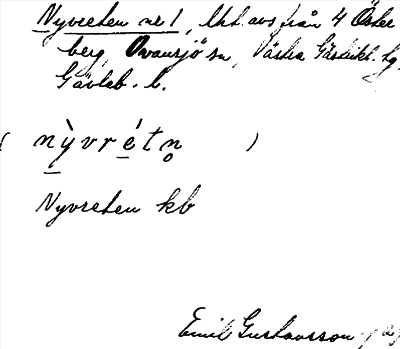 Nyvreten nr 1, lht. avs från 4 Öster
berg, Ovansjö sn, Västra Gästrikl. hg.
Gävleb. l.
( nỳvrétn̥ )
Nyvreten kb
Emil Gustavsson